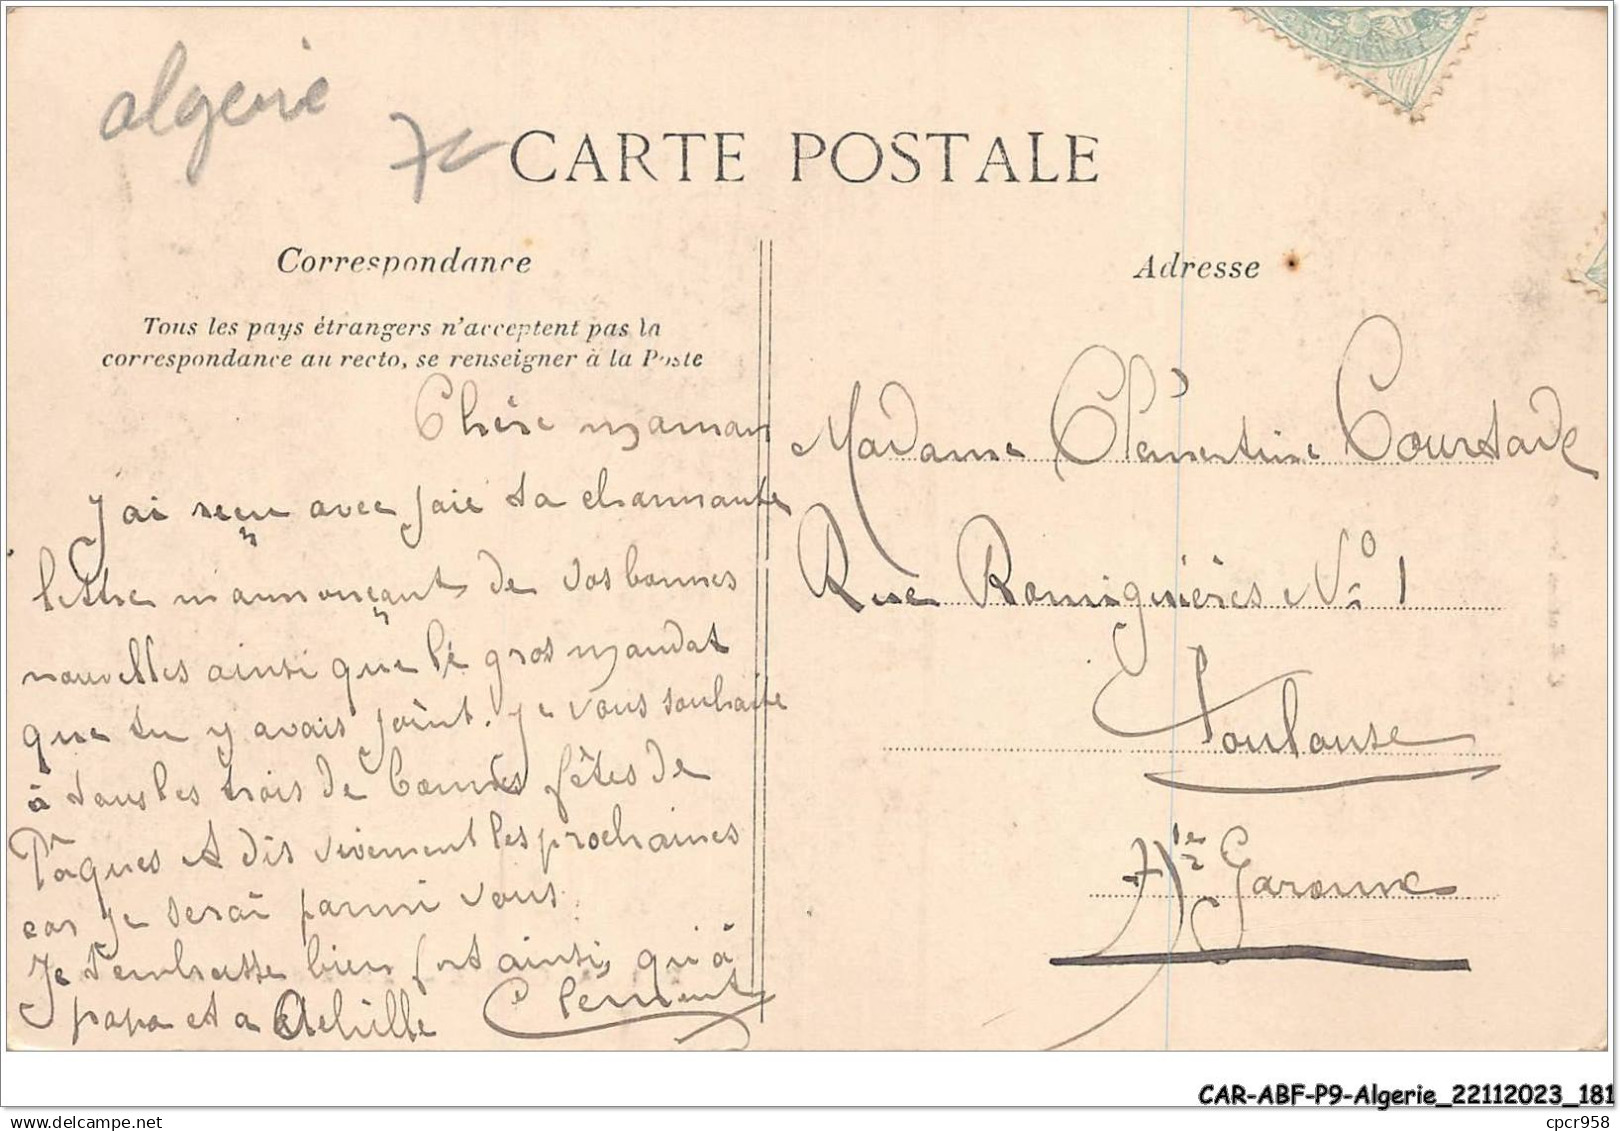 algerie
CARTE POSTALE
Correspondance
Tous les pays étrangers n'acceptent pas la
correspondance au recto, se renseigner à la Poste
Chère maman
J'ai reçu avec joie ta charmante
lettre m'annonçant de vos bonnes
nouvelles ainsi que le gros mandat
que tu y avais joint. Je vous souhaite
à tous les trois de bonnes fêtes de
Pâques et dis vivement les prochaines
car je serai parmi vous.
Je t'embrasse bien fort ainsi qu'à
papa et a Achille Clément
Adresse
Madame Clémentine Courtade
Rue Romiguières No 1
Toulouse
Hte Garonne
CAR-ABF-P9-Algerie_22112023_181
cpcr958